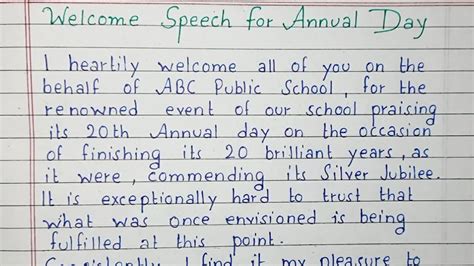 Welcome Speech for Annual Day
I heartily welcome all of you on the
behalf of ABC Public School, for the
renowned event of our school praising
its 20th Annual day on the occasion
of finishing its 20 brilliant years, as
it were, commending its Silver Jubilee.
It is exceptionally hard to trust that
what was once envisioned is being
fulfilled at this point.
Consistently, I find it my pleasure to